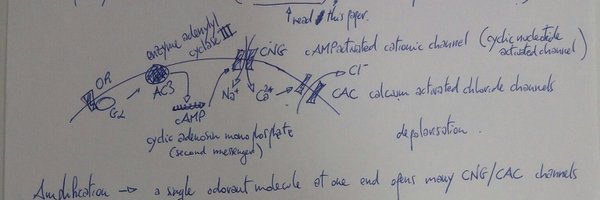 read this paper.
enzyme adenylyl
cyclase III
CNG cAMP activated cationic channel (cyclic nucleotide
activated channel)
OR
AC3
Na+
Ca2+
Cl-
cAMP
CAC calcium activated chloride channels
cyclic adenosin monophosphate
(second messenger)
depolarisation.
Amplification → a single odorant molecule at one end opens many CNG/CAC channels